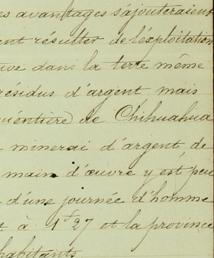 es avantages s'ajouteraient
ent résulter de l'exploitation
uve dans la terte même
rendus d'argent mais
nventure de Chihuahua
minerai d'argent de
main d'œuvre y est peu
d'une journée d'homme
t à 1 27 et la province
habitants